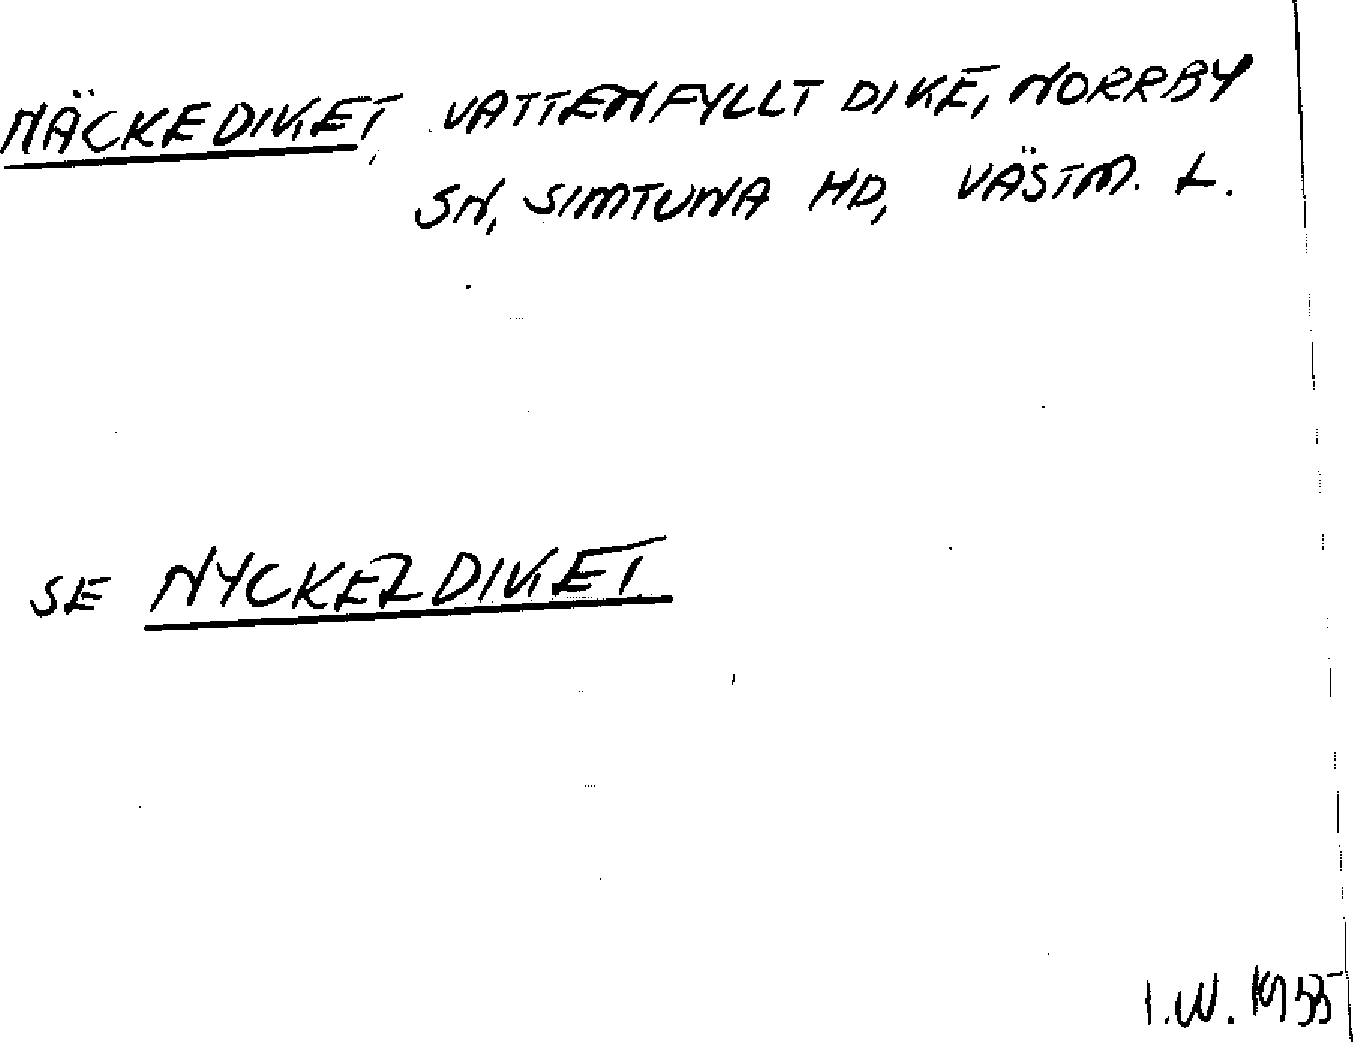 NÄCKEDIKET, VATTENFYLLT DIKE, NORRBY
SN, SIMTUNA HD, VÄSTM. L.
SE NYCKELDIKET.
I.W. 1955